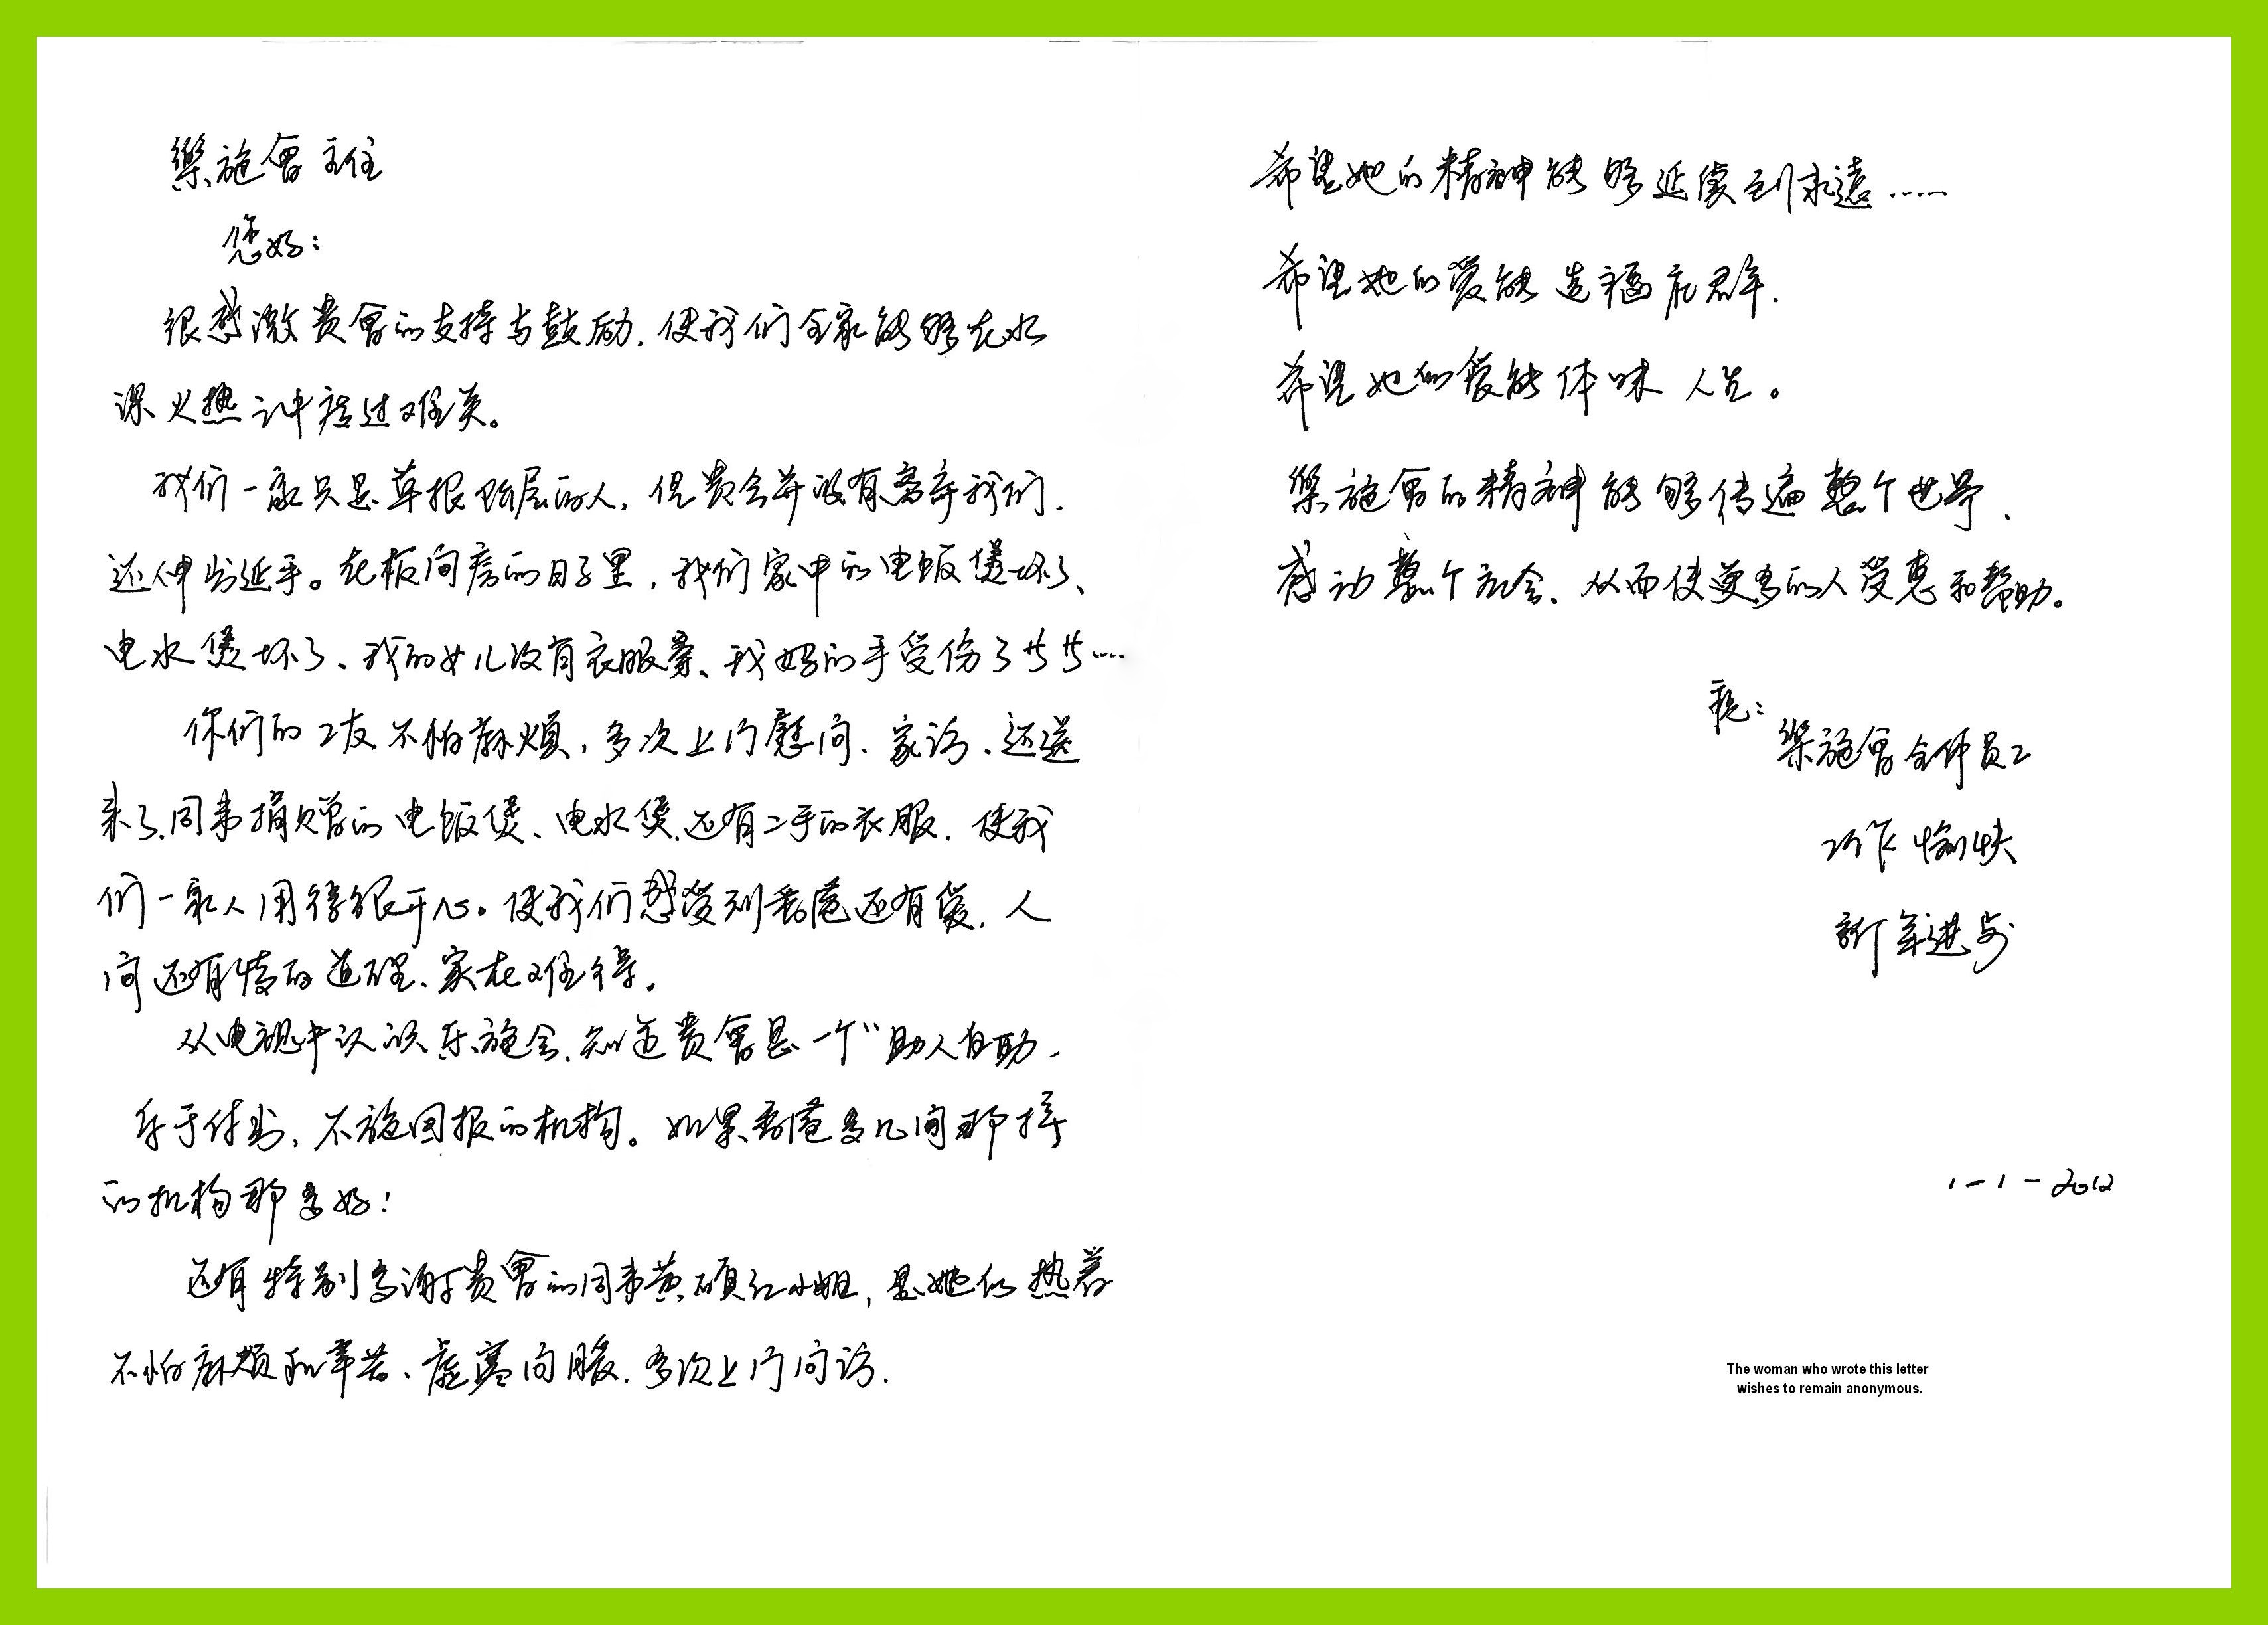 樂施會主任
您好：
很感激贵會的支持与鼓励．使我们全家能够在水
深火热之中走过难关。
我们一家只是草根阶层的人，但贵会并没有离弃我们．
还伸出延手。在板间房的日子里，我们家中的电饭煲坏了、
电水煲坏了、我的女儿没有衣服穿、我妈的手受伤了……
你们的工友不怕麻烦，多次上门慰问、家访、还送
来了同事捐赠的电饭煲、电水煲．还有二手的衣服．使我
们一家人用得很开心。使我们感受到香港还有爱．人
间还有情的道理、实在难得。
从电视中认识乐施会．知道贵會是一个“助人自助．
乐于付出，不施回报的机构。如果香港多几间那样
的机构那多好！
还有特别多谢贵會的同事黄碩红小姐，是她的热若
不怕麻烦和辛苦、虚寒问暖．多次上门问访．
希望她的精神能够延续到永遠……
希望她的爱能造福社群．
希望她的爱能体味人生。
樂施會的精神能够传遍整个世界．
感动整个社会．从而使更多的人受惠和帮助。
祝：
樂施會全体员工
工作愉快
新年进步
1-1-2012
The woman who wrote this letter
wishes to remain anonymous.